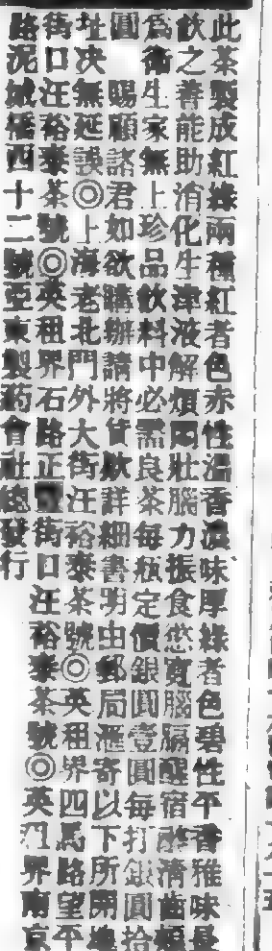 此茶製成紅綠兩種紅者色赤性溫香濃味厚綠者色碧性平香雅味長
飲之者能助消化生津液解煩悶壯腦力振食慾寬腦膈醒宿酔清齒頰
爲衛生家無上珍品飲料中必需良茶每瓶定價銀圓壹圓每打銀圓拾
圓 賜顧諸君如欲購辦請將貨欵詳細書明由郵局滙寄以下所開
址决無延誤◎上海老北門外大街汪裕泰茶號◎英租界四馬路望平
街口汪裕泰茶號◎英租界石路正街口汪裕泰茶號◎英租界南京
路泥城橋西十二號亞東製葯會社總發行